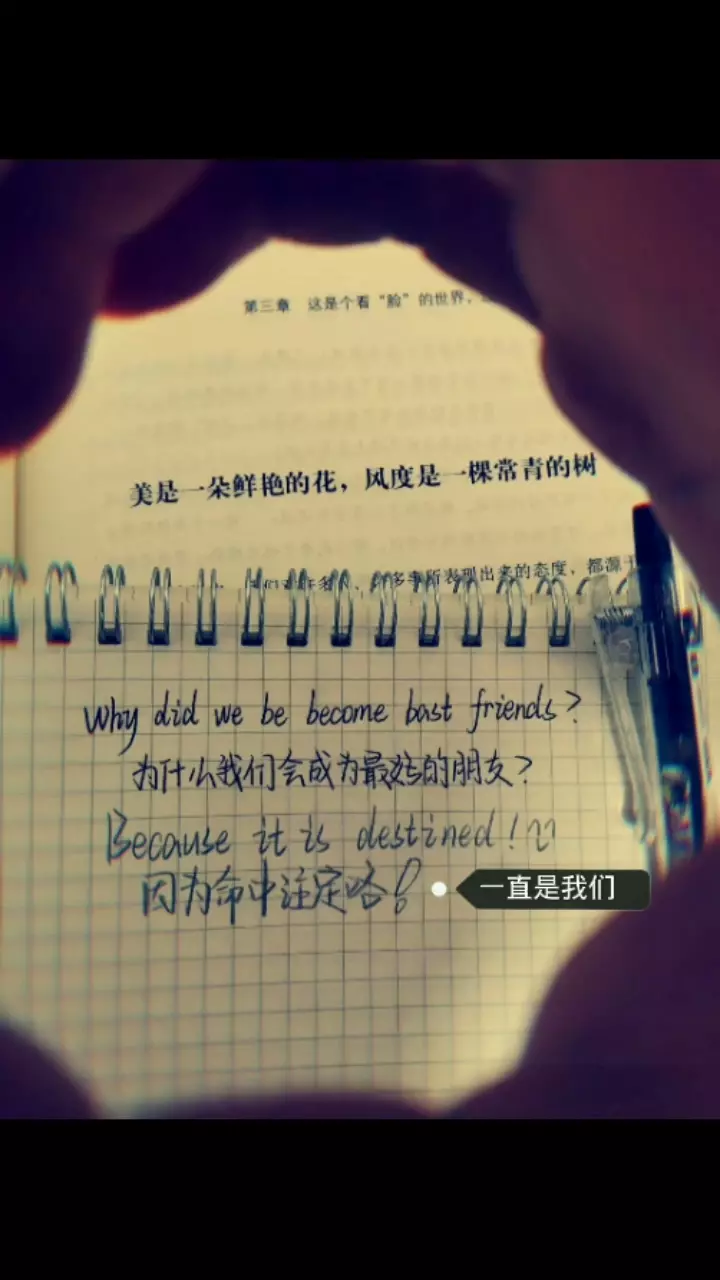 第三章 这是个看“脸”的世界,
美是一朵鲜艳的花，风度是一棵常青的树
多事所表现出来的态度，都源于
Why did we be become bast friends?
为什么我们会成为最好的朋友?
Because it is destined!
因为命中注定咯!
一直是我们